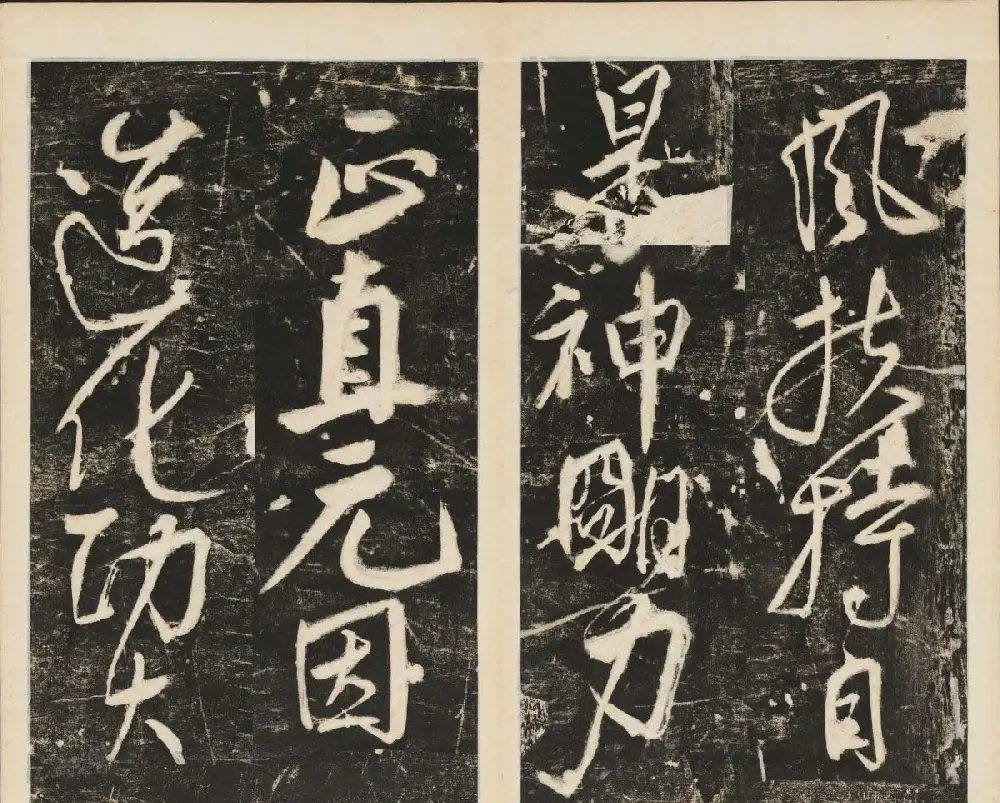 風扶持自
是神明力
正直元因
造化功大